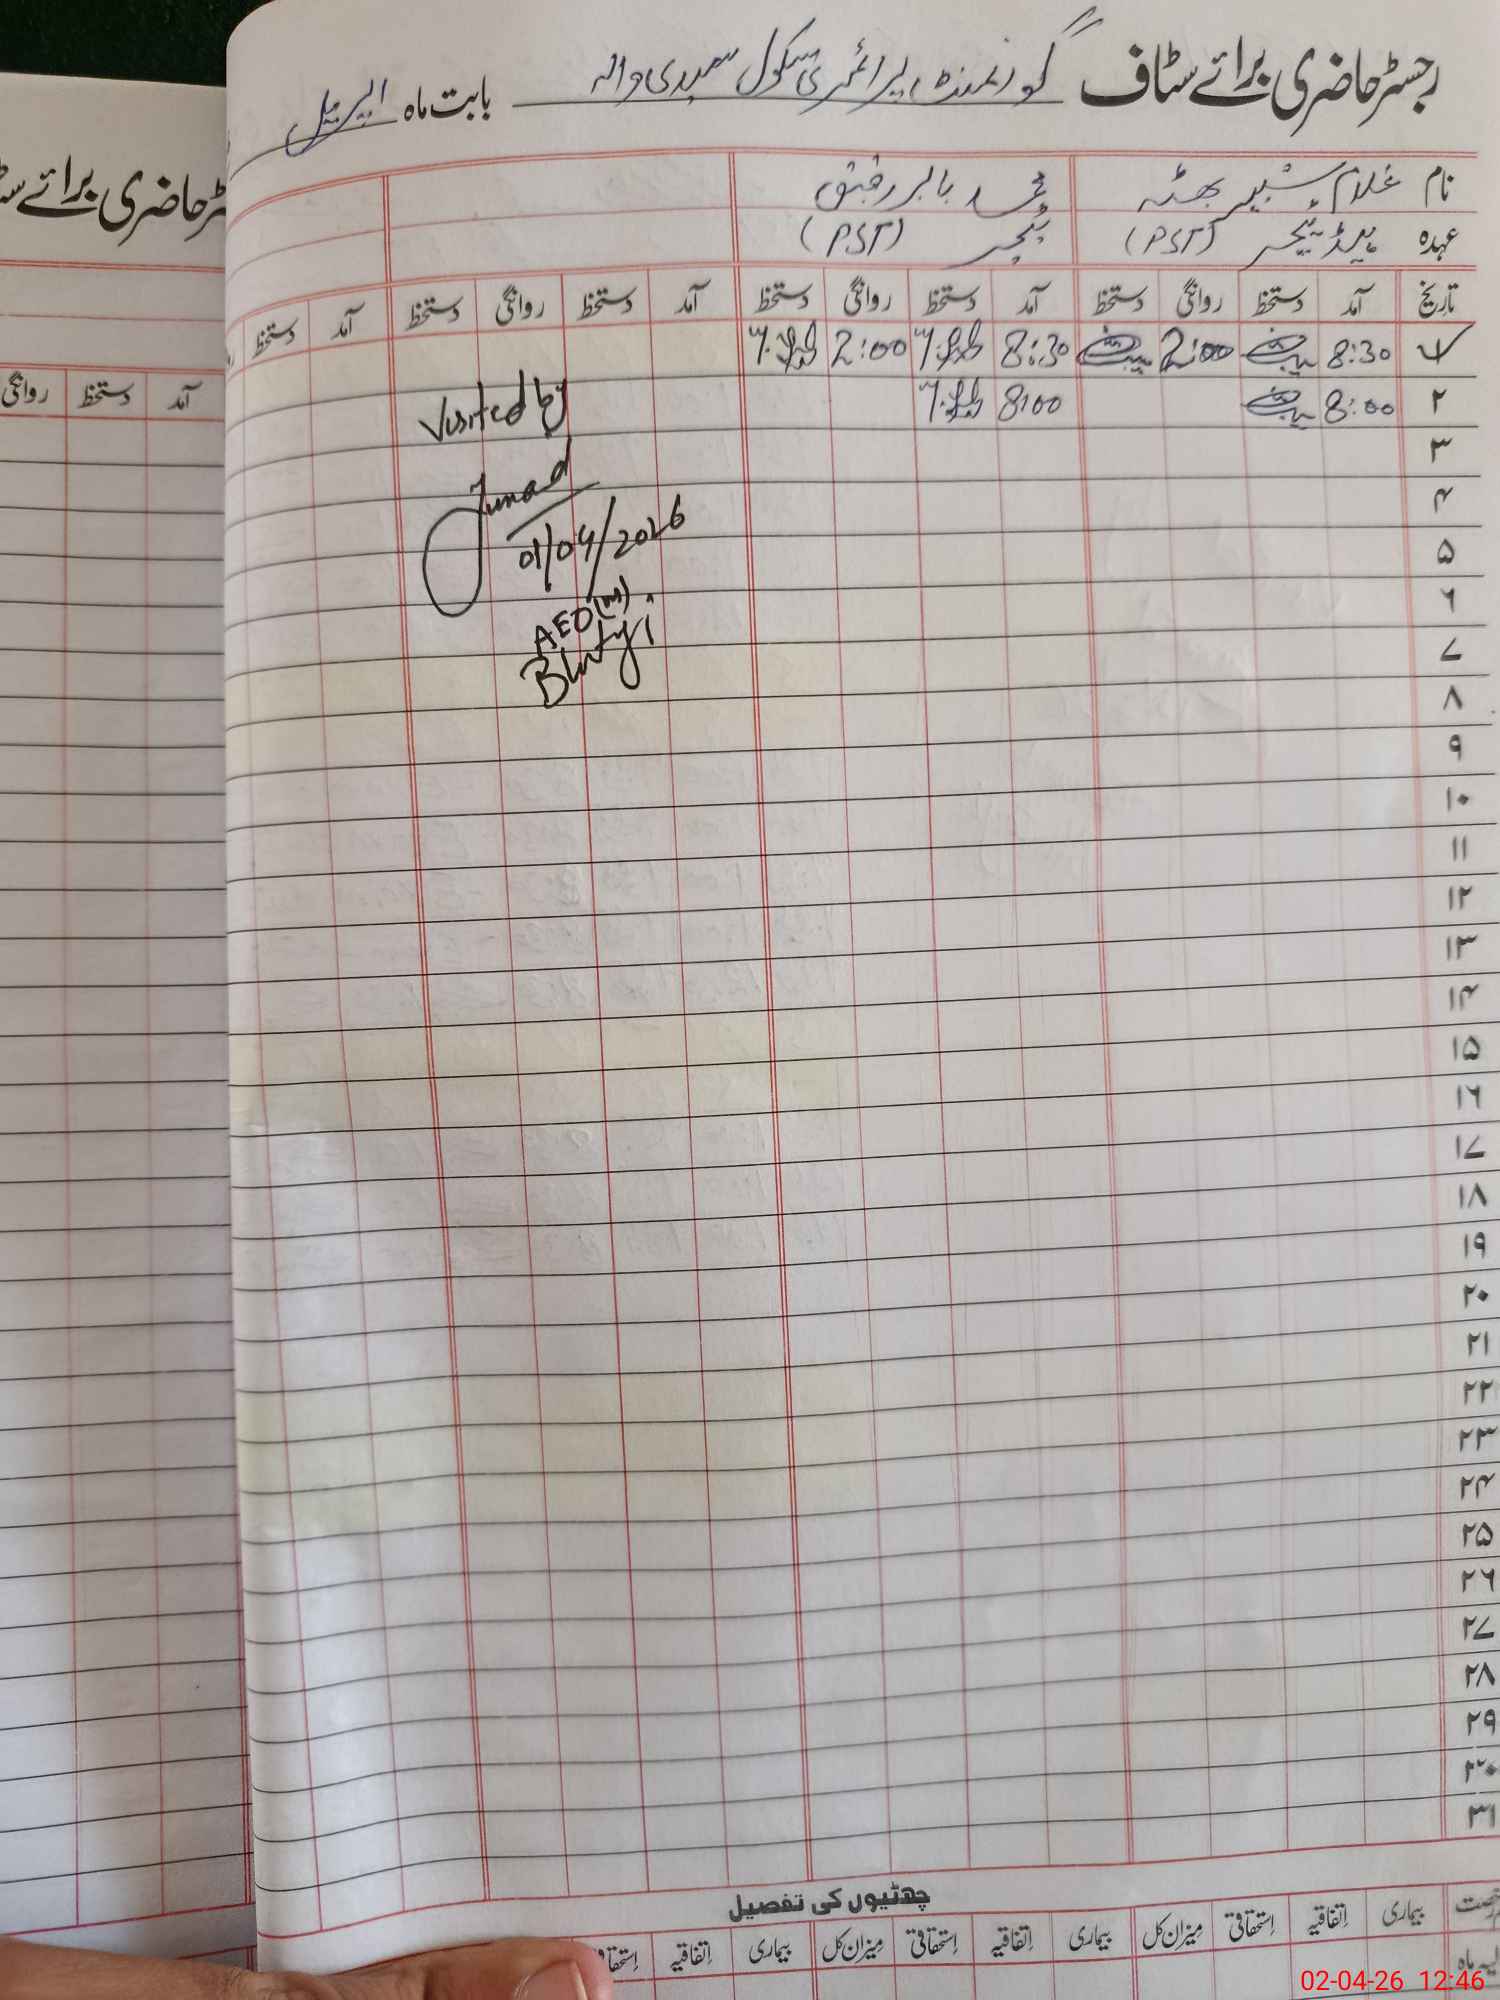 رجسٹر حاضری برائے سٹاف گورنمنٹ پرائمری سکول بابت ماہ اپریل
نام غلام شبیر بھٹہ محمد بابر رفیق
عہدہ ہیڈ ٹیچر (PST) ٹیچر (PST)
تاریخ آمد دستخط روانگی دستخط آمد دستخط روانگی دستخط آمد دستخط روانگی دستخط آمد دستخط
۱ 8:30 2:00 8:30 2:00
۲ 8:00 8:00
Visited by
۳
Junad
۴
01/04/2026
۵
AEO(M)
۶
۷
۸
۹
۱۰
۱۱
۱۲
۱۳
۱۴
۱۵
۱۶
۱۷
۱۸
۱۹
۲۰
۲۱
۲۲
۲۳
۲۴
۲۵
۲۶
۲۷
۲۸
۲۹
۳۰
۳۱
چھٹیوں کی تفصیل
بیماری اتفاقیہ استحقاقی میزان کل بیماری اتفاقیہ استحقاقی میزان کل بیماری اتفاقیہ
آمد دستخط روانگی
02-04-26 12:46